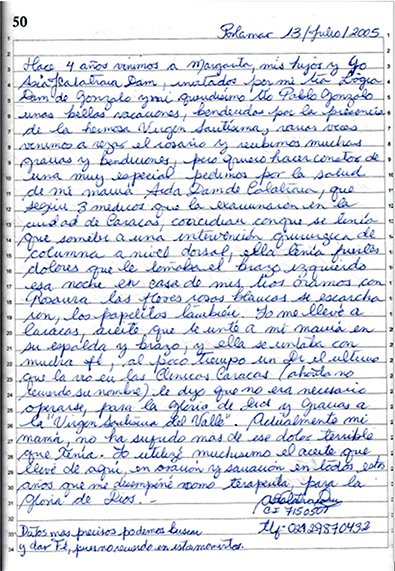 50
Porlamar 13/Julio/2005
Hace 4 años vinimos a Margarita, mis hijos y yo
Calatrava Dam, invitados por mi tía Ligia
Dam de Gonzalo y mi queridísimo tío Pablo Gonzalo
unas bellas vacaciones, bendecidas por la presencia
de la hermosa Virgen Santísima, varias veces
venimos a rezar el rosario y recibimos muchas
gracias y bendiciones, pero quiero hacer constar de
una muy especial pedimos por la salud
de mi mamá Aida Dam de Calatrava, que
según 3 medicos que la examinaron en la
ciudad de Caracas, coincidian conque se tenía
que someter a una intervención quirurgica de
columna a nivel dorsal, ella tenía fuertes
dolores que le tomaba el brazo izquierdo
esa noche en casa de mis tios oramos con
Rosaura las flores rosas blancas se escarcha
ron, los papelitos también. Yo me lleve a
Caracas, aceite, que le unte a mi mamá en
su espalda y brazo, y ella se untaba con
mucha fé, al poco tiempo un Dr el ultimo
que la vio en las Clínicas Caracas (ahorita no
recuerdo su nombre) le dijo que no era necesario
operarse, para la Gloria de Dios y Gracias a
la "Virgen Santísima del Valle". Actualmente mi
mamá, no ha sufrido mas de ese dolor terrible
que tenía. Yo utilicé muchisimo el aceite que
llevé de aquí, en oración y sanación en todos estos
años que me desempeñé como terapeuta, para la
Gloria de Dios.-
CI 7150507
Datos mas precisos podemos buscar tlf: 02129870432
y dar Fé, pues no recuerdo en estos momentos.